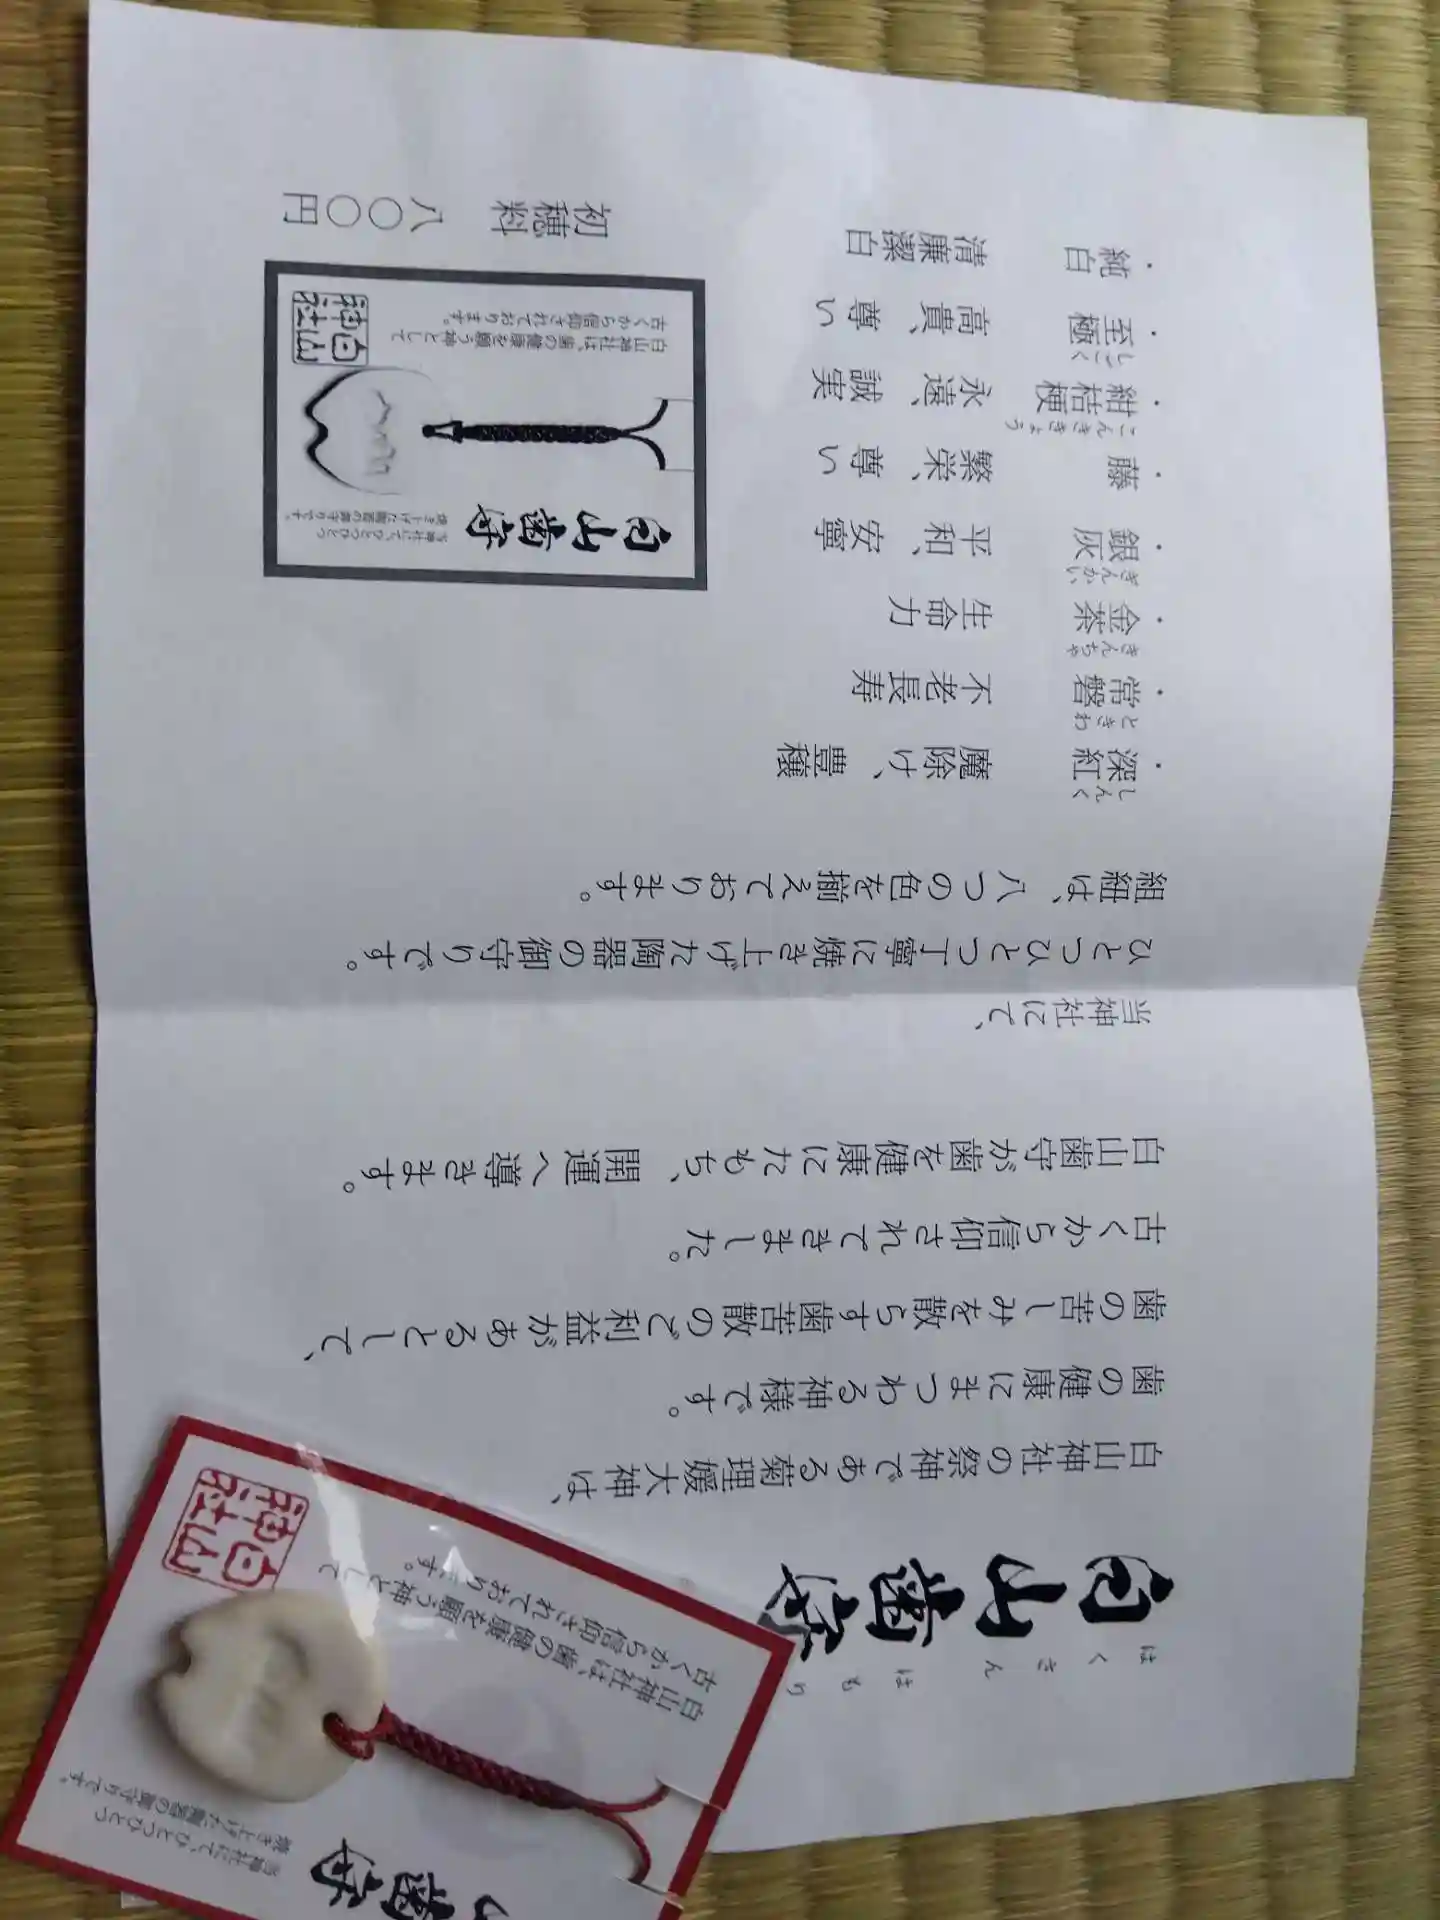 はくさん はもり
白山歯守
白山神社の祭神である菊理媛大神は、
歯の健康にまつわる神様です。
歯の苦しみを散らす歯苦散のご利益があるとして、
古くから信仰されてきました。
白山歯守が歯を健康にたもち、開運へ導きます。
当神社にて、
ひとつひとつ丁寧に焼き上げた陶器の御守りです。
組紐は、八つの色を揃えております。
・深紅 しんく 魔除け、豊穣
・常磐 ときわ 不老長寿
・金茶 きんちゃ 生命力
・銀灰 ぎんかい 平和、安寧
・藤 繁栄、尊い
・紺桔梗 こんききょう 永遠、誠実
・至極 しごく 高貴、尊い
・純白 清廉潔白
白山歯守
当神社にて、ひとつひとつ
焼き上げた陶器の御守りです。
白山神社は、歯の健康を願う神として
古くから信仰されております。
白山神社
初穂料 八〇〇円
山歯守
当神社にて、ひとつひとつ
焼き上げた陶器の御守りです。
白山神社は、歯の健康を願う神として
古くから信仰されております。
白山神社